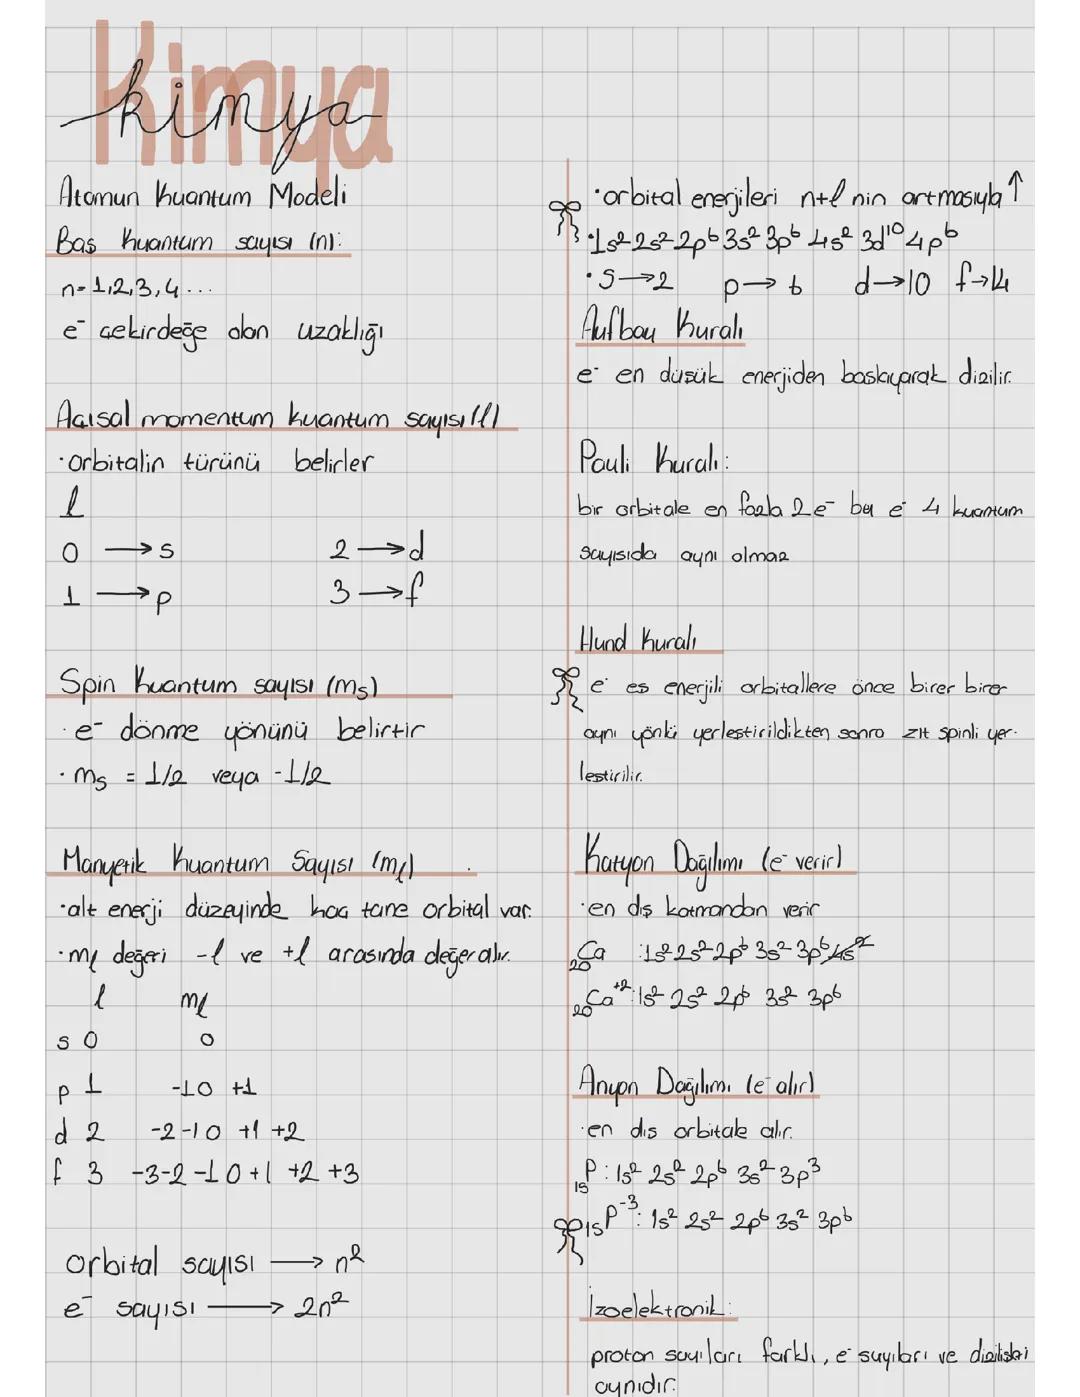 Kimya
kimya
Atomun Kuantum Modeli
Baş kuantum sayısı (n):
n=1,2,3,4...
e⁻ çekirdeğe olan uzaklığı
Açısal momentum kuantum sayısı (l)
·orbitalin türünü belirler
l
0 → s 2 → d
1 → p 3 → f
Spin kuantum sayısı (ms)
·e⁻ dönme yönünü belirtir
·ms = 1/2 veya -1/2
Manyetik kuantum Sayısı (ml)
·alt enerji düzeyinde kaç tane orbital var.
·ml değeri -l ve +l arasında değer alır.
l ml
s 0 0
p 1 -1 0 +1
d 2 -2 -1 0 +1 +2
f 3 -3 -2 -1 0 +1 +2 +3
orbital sayısı → n²
e⁻ sayısı → 2n²
·orbital enerjileri n+l nin artmasıyla ↑
·1s² 2s² 2p⁶ 3s² 3p⁶ 4s² 3d¹⁰ 4p⁶
·s→2 p→6 d→10 f→14
Aufbau Kuralı
e⁻ en düşük enerjiden başlayarak dizilir.
Pauli Kuralı:
bir orbitale en fazla 2e⁻ bu e⁻ 4 kuantum
sayısıda aynı olmaz
Hund Kuralı
e⁻ eş enerjili orbitallere önce birer birer
aynı yönki yerleştirildikten sonra zıt spinli yer-
leştirilir.
Katyon Dağılımı (e⁻ verir)
·en dış katmandan verir
₂₀Ca :1s² 2s² 2p⁶ 3s² 3p⁶ 4s²
₂₀Ca⁺²:1s² 2s² 2p⁶ 3s² 3p⁶
Anyon Dağılımı (e⁻ alır)
·en dıs orbitale alır.
₁₅P : 1s² 2s² 2p⁶ 3s² 3p³
₁₅P⁻³: 1s² 2s² 2p⁶ 3s² 3p⁶
İzoelektronik:
proton sayıları farklı, e⁻ sayıları ve dizilişleri
aynıdır.